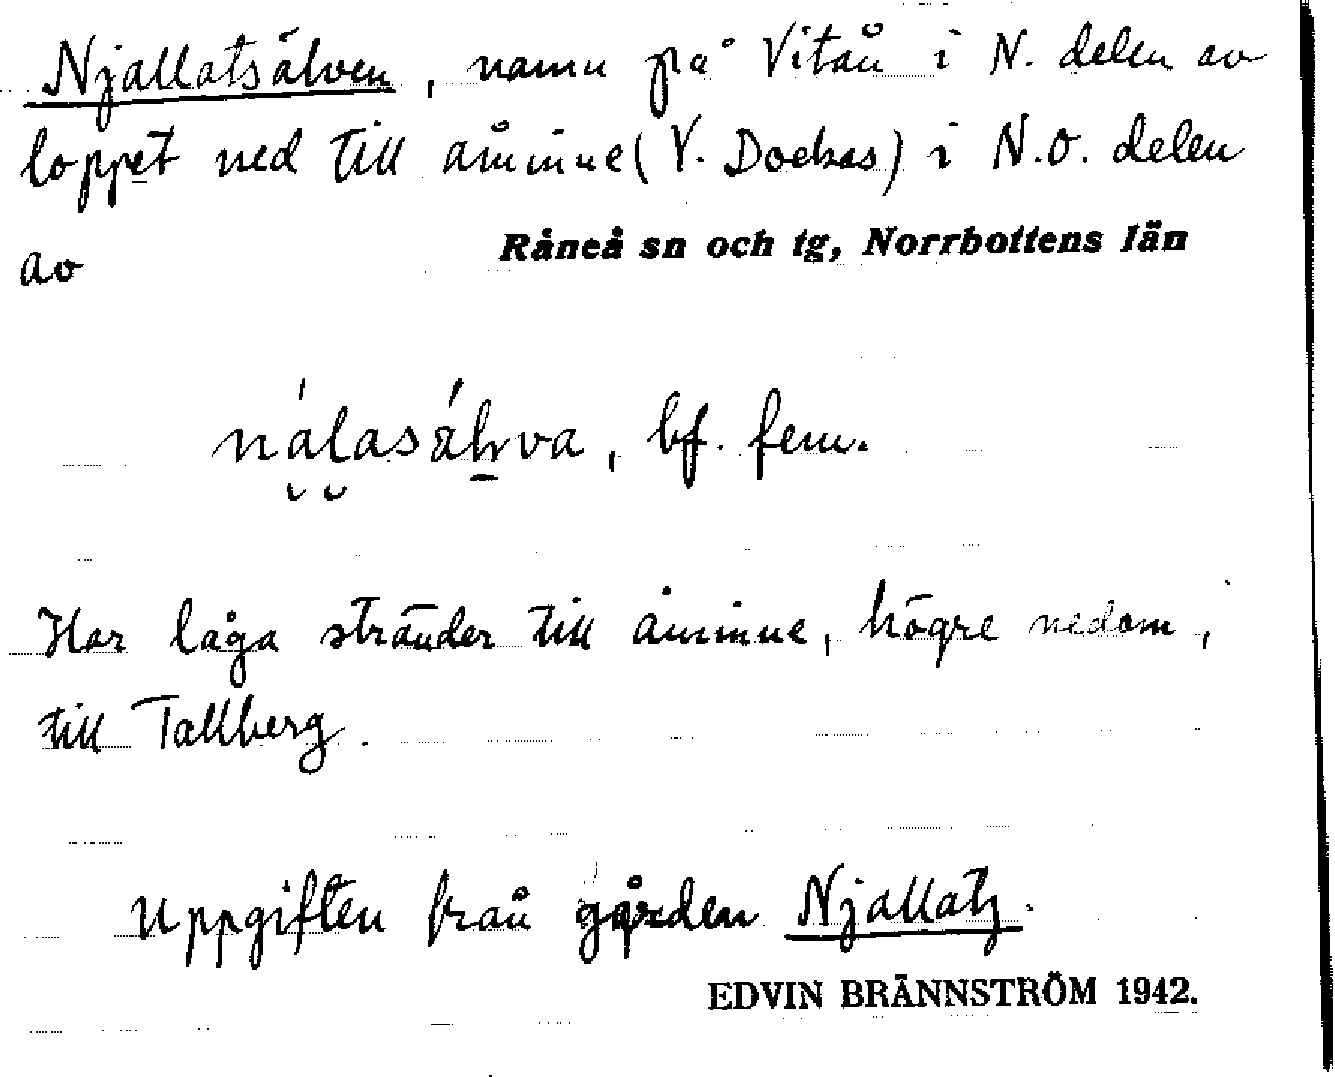 Njallatsälven, namn på Vitån i N. delen av
loppet ned till åminne (V. Dockas) i N.O. delen
av Råneå sn och tg, Norrbottens län
bf. fem.
Har låga stränder till åminne, högre nedom,
till Tallberg.
Uppgiften från gården Njallatz.
EDVIN BRÄNNSTRÖM 1942.